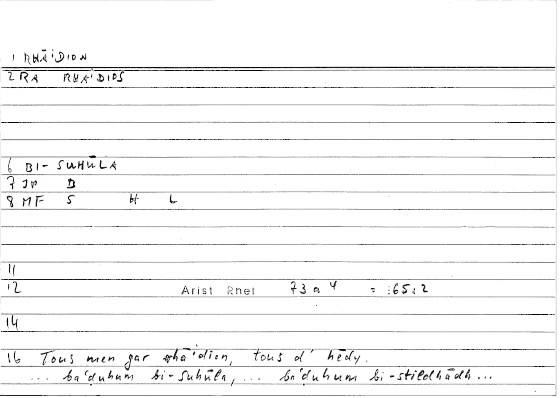 1 RHĀ'DION
2 RA RHĀ'DIOS
6 BI- SUHŪLA
7 JP B
8 MF S H L
11
12 Arist Rhet 73 a 4 = :65:2
14
16 Tous men gar rhā'dion, tous d' hēdy.
... ba'duhum bi-suhūla, ... ba'duhum bi-stildhādh ...